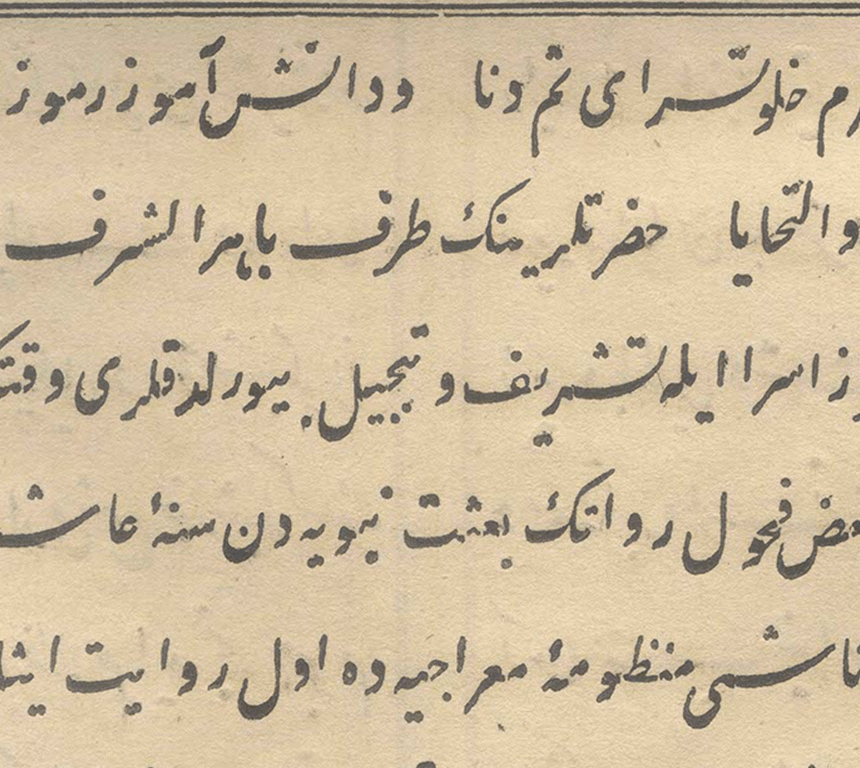 خلوتسرای ثم دنا ودانش آموز رموز
والتحایا حضرتلرینك طرف باهر الشرف
اسرا ایله تشریف وتبجیل بیورلدقلری
فحول رواتك بعثت نبویه دن سنهٔ
منظومهٔ معراجیه ده اول روایت